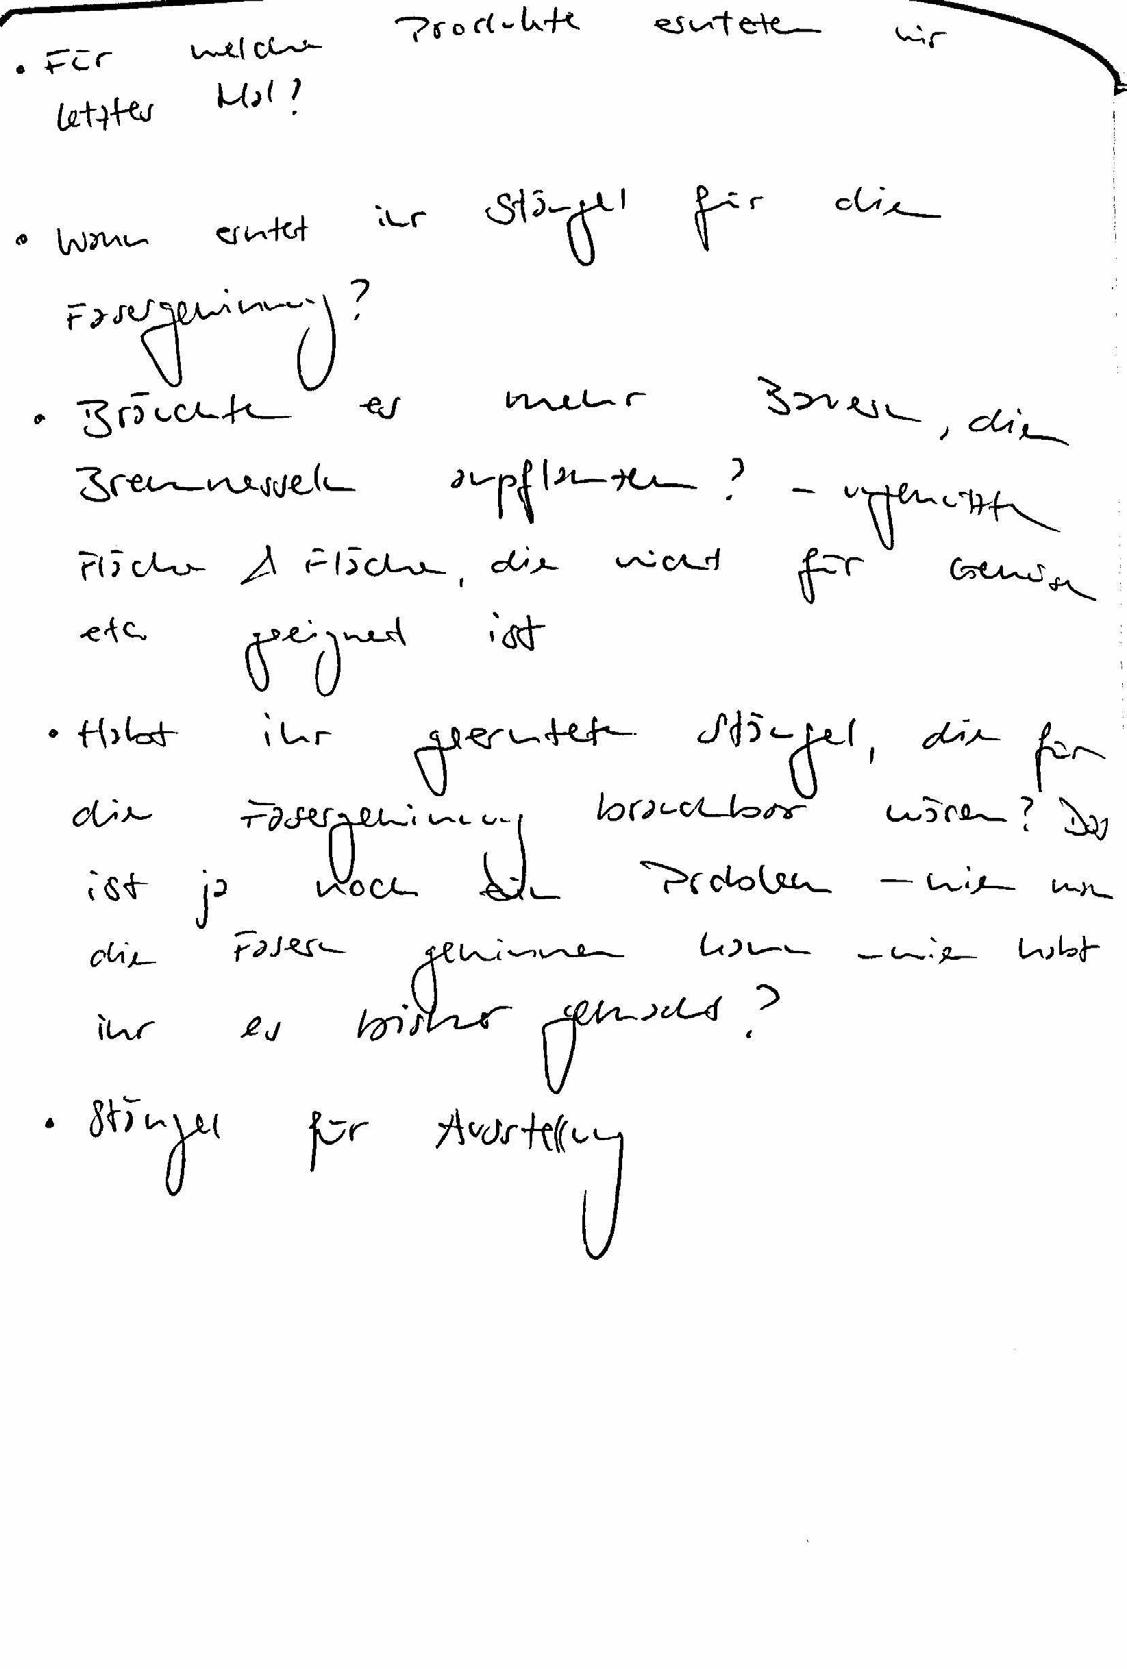 • Für welche Produkte ernteten wir
letztes Mal?
• Wann erntet ihr Stängel für die
Fasergewinnung?
• Bräuchte es mehr Bauern, die
Brennnesseln anpflanzen? – ungenutzte
Fläche Fläche, die nicht für Gemüse
etc. geeignet ist
• Habt ihr geerntete Stängel, die für
die Fasergewinnung brauchbar wären? Das
ist ja noch ein Problem – wie man
die Fasern gewinnen kann – wie habt
ihr es bisher gemacht?
• Stängel für Ausstellung